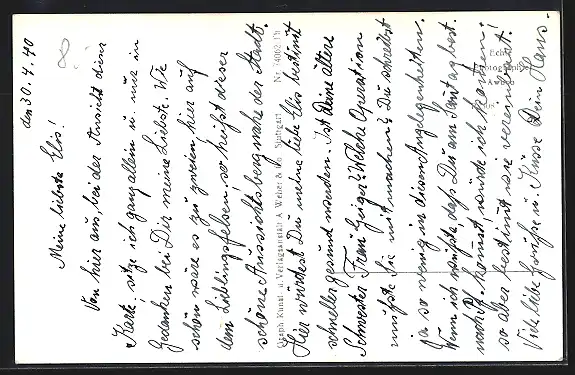 den 30. 4. 40
Meine liebste Elis!
Von hier aus, bei der Ansicht dieser
Karte, sitze ich ganz allein u. nur in
Gedanken bei Dir meine Liebste. Wie
schön wäre es zu zweien hier auf
dem Lieblingsfelsen, so heißt dieser
schöne Aussichtsberg nahe der Stadt.
Hier würdest Du meine liebe Elis bestimmt
schneller gesund werden. Ist Deine ältere
Schwester Frau Geiger? Welche Operation
mußte Sie mitmachen? Du schreibst
ja so wenig in diesen Angelegenheiten.
Wenn ich wüßte, daß Du am Samstag
nach kommst, würde ich kommen.
so aber bestimmt wie vereinbart!
Viele liebe Grüße u. Küsse Dein Hans.
Graph. Kunst- u. Verlagsanstalt A. Weber & Co., Stuttgart Nr. 74062
Echte
Photographie
A. Weber